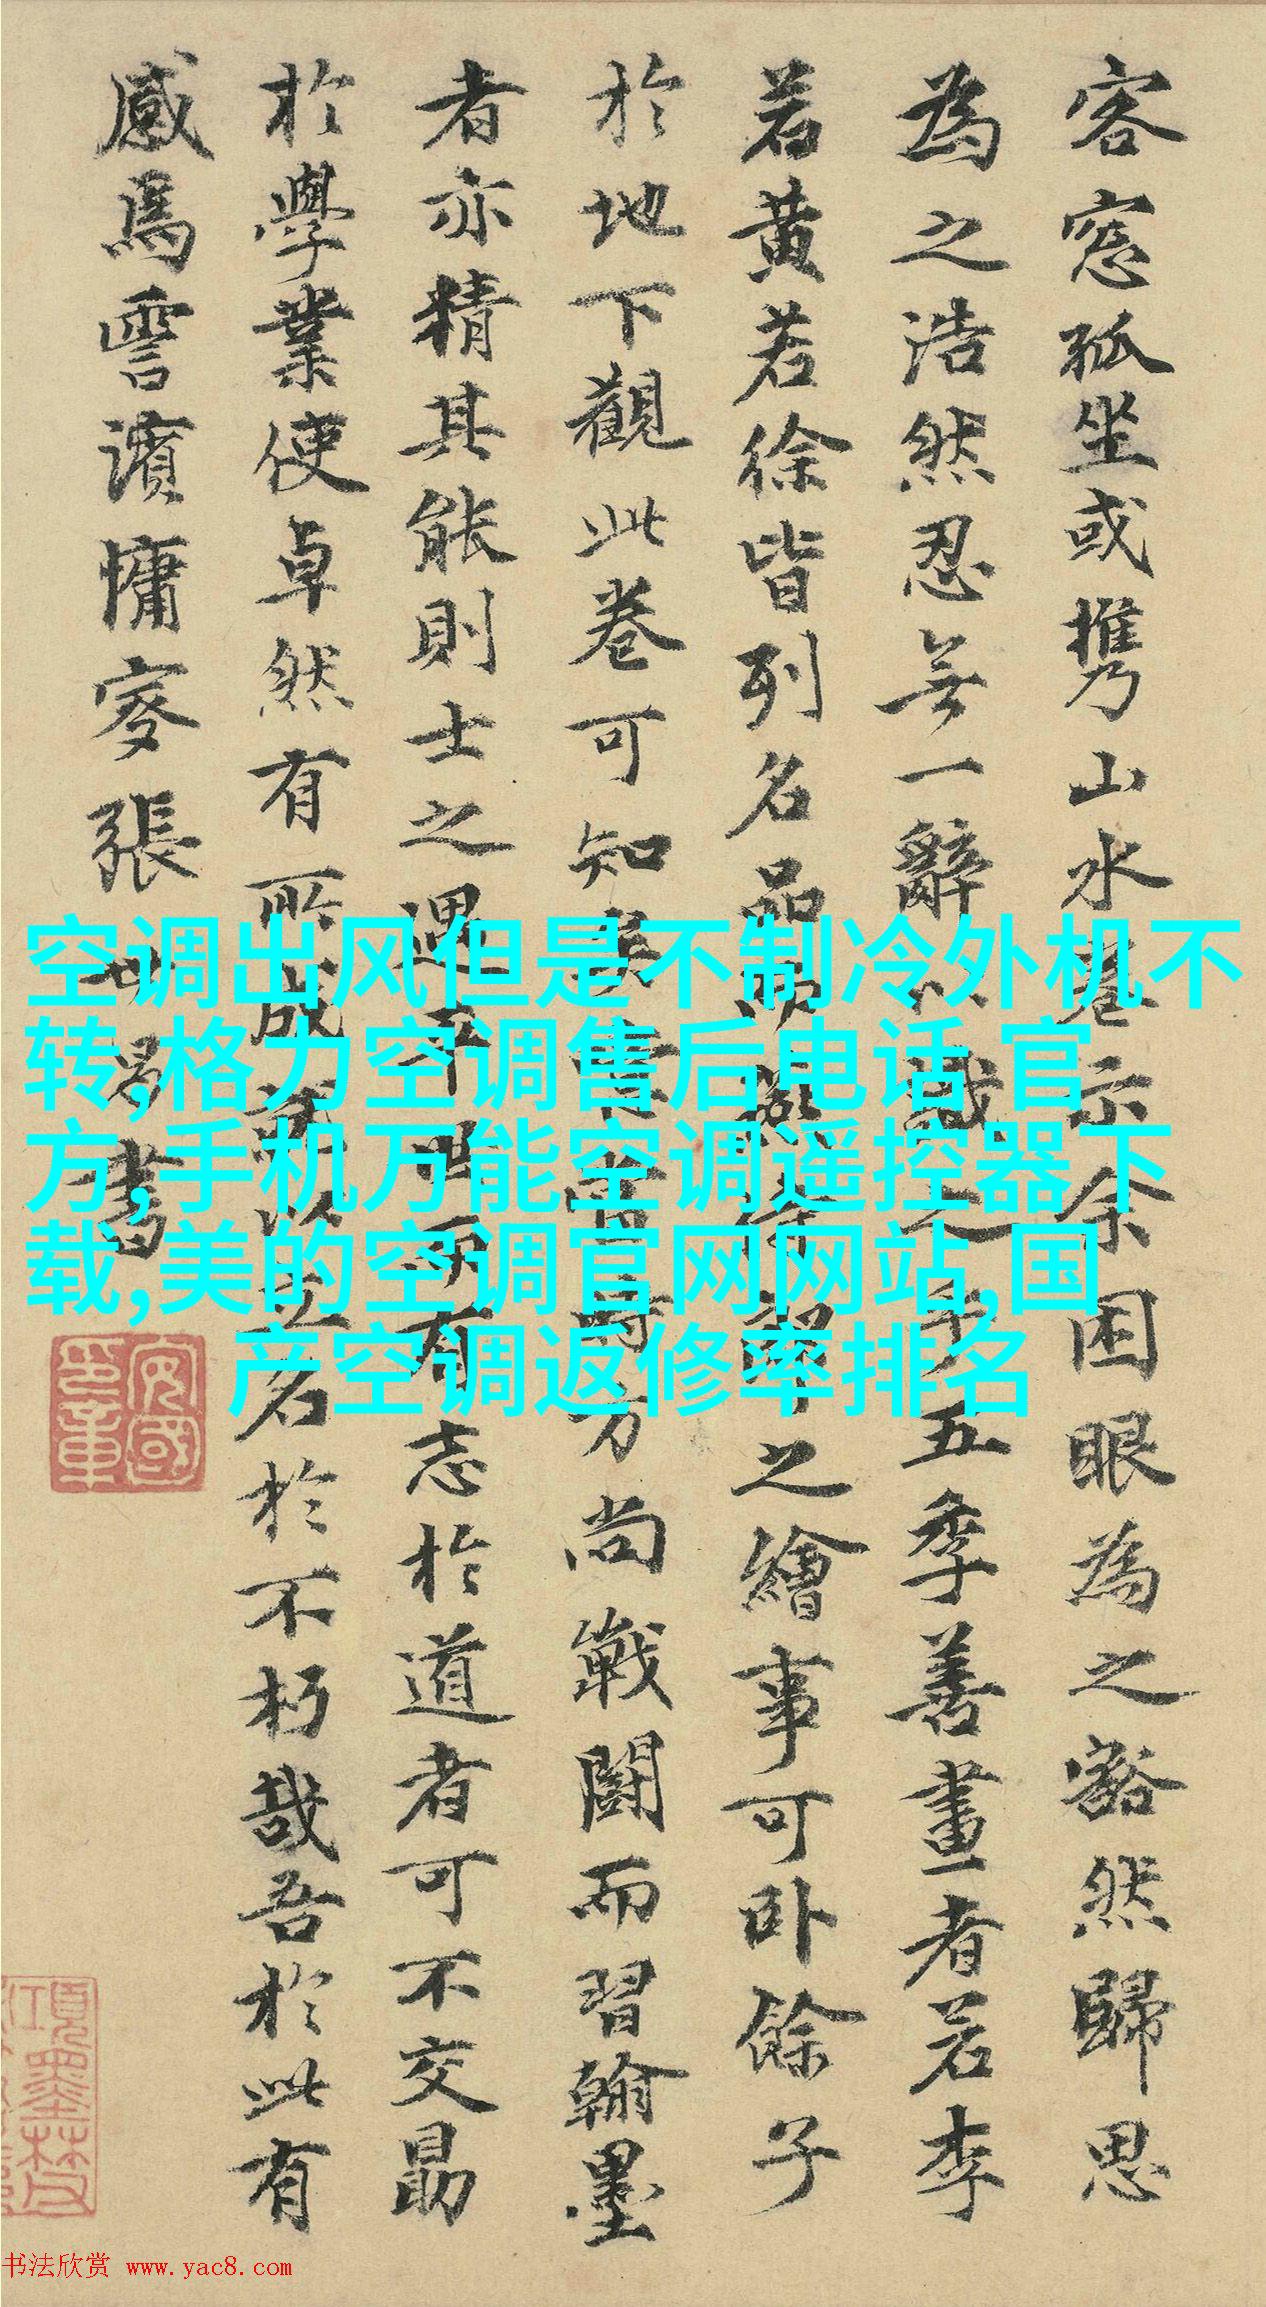 客窓孤坐或携山水卷示余困眼為之豁然歸思
為之浩然忍无一辭以識之乎五季善畫者若李
若黄若徐皆列名品而燕待詔之繪事可卧餘子
於地下觀此卷可知矣當時方尚戰鬪而習翰墨
者亦精其能則士之遇平時而有志於道者可不交勗
於學業使卓然有所成就以立名於不朽哉吾於此有
感焉雪濱慵叟張世昌書
空调出风但是不制冷外机不
转,格力空调售后电话,官
方,手机万能空调遥控器下
载,美的空调官网网站,国
产空调返修率排名
书法欣赏 www.yac8.com